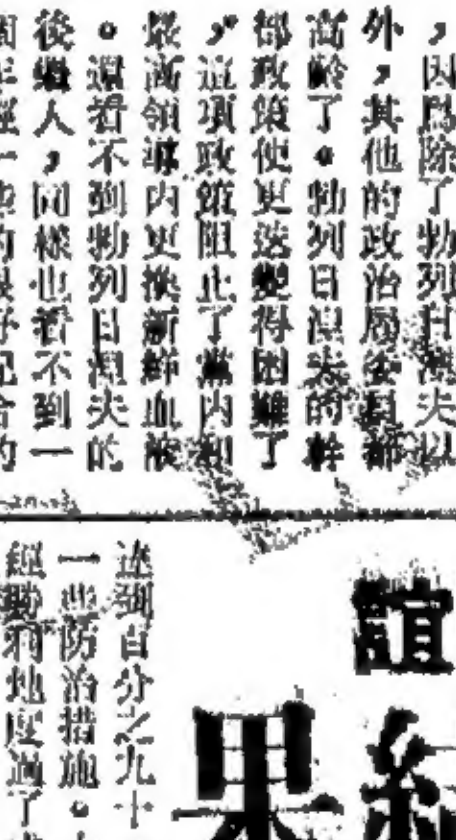 ，因爲除了勃列日湼夫以
外，其他的政治局委員都
高齡了。勃列日湼夫的幹
部政策使更迭變得困難了
，這項政策阻止了黨內和
最高領導內更換新鮮血液
。還看不到勃列日湼夫的
後繼人，同樣也看不到一
誼
結
果
達到百分之九十
一些防治措施。
經勝利地度過了